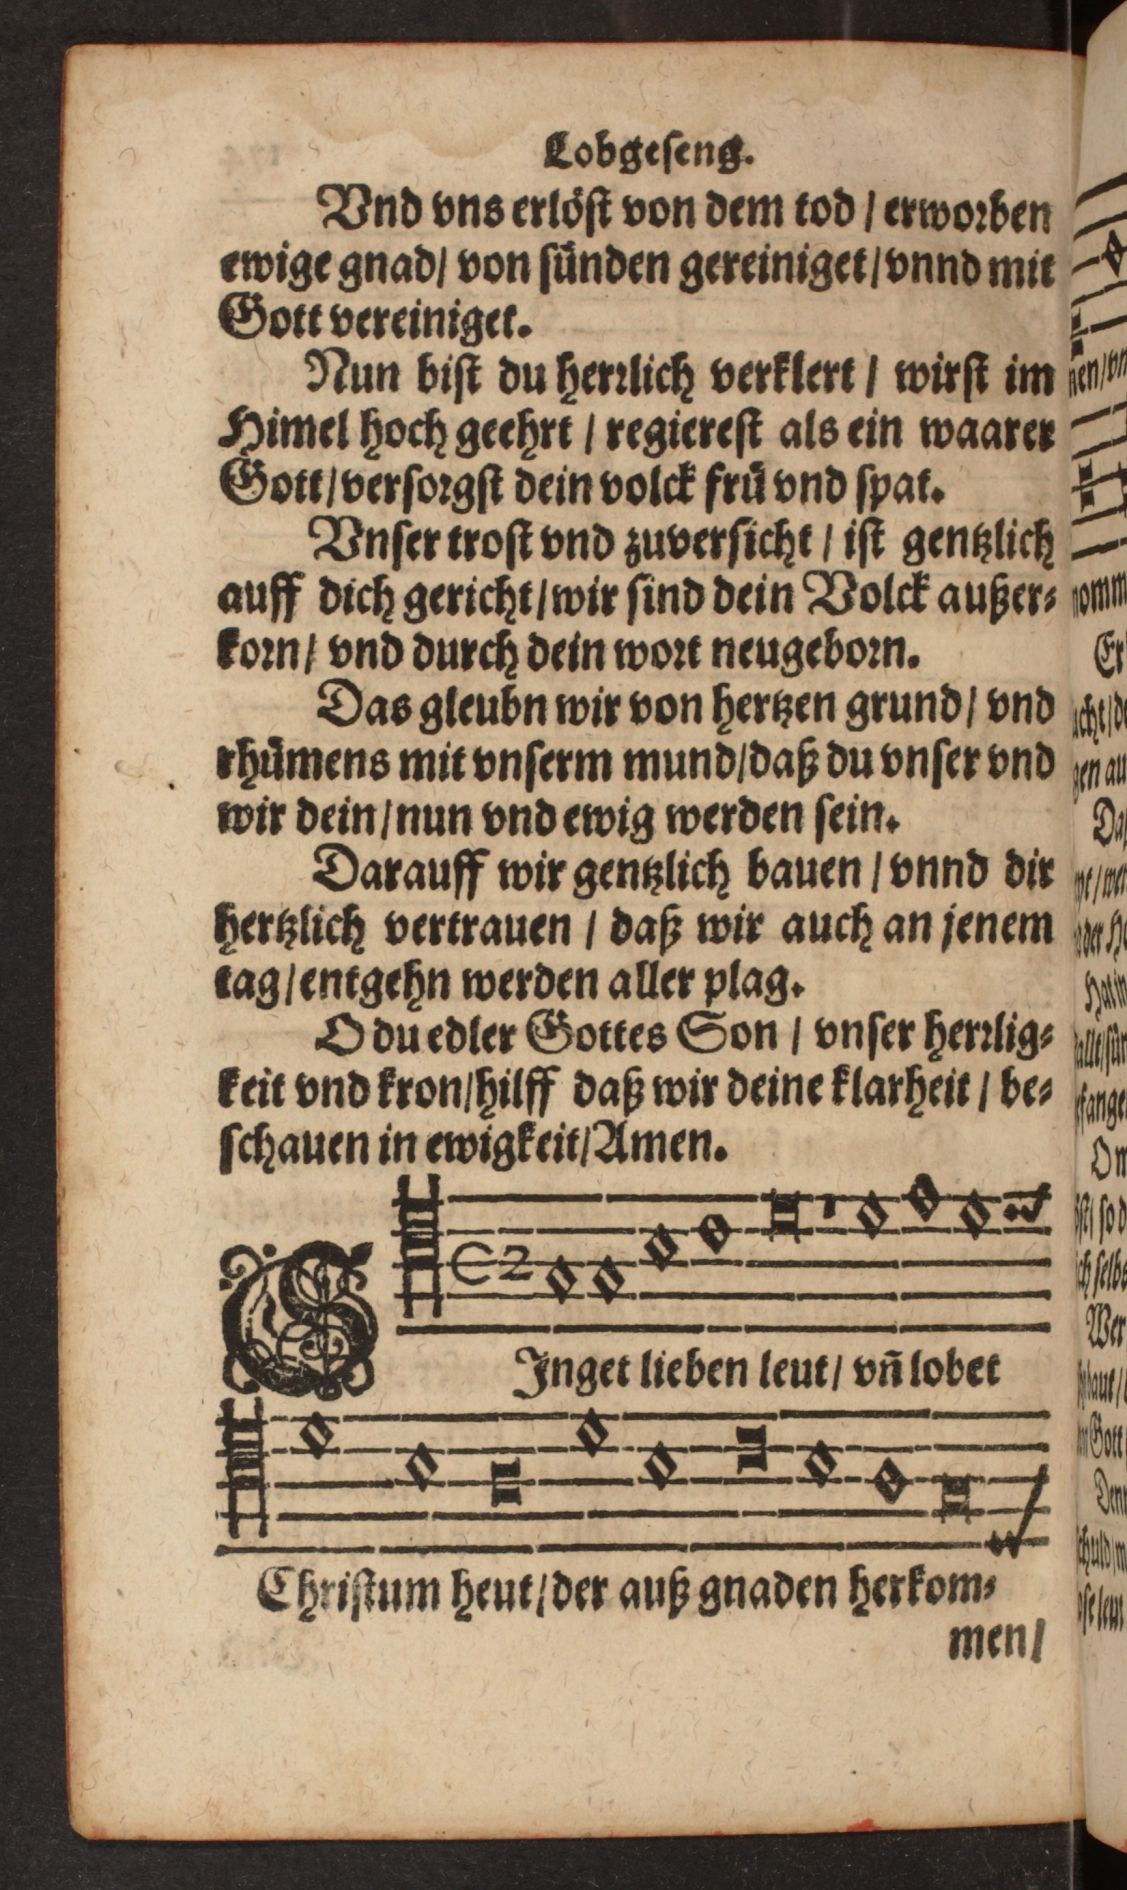 Lobgeseng.
Vnd vns erlöst von dem tod / erworben
ewige gnad / von sünden gereiniget / vnnd mit
Gott vereiniget.
Nun bist du herrlich verklert / wirst im
Himel hoch geehrt / regierest als ein waarer
Gott / versorgst dein volck frü vnd spat.
Vnser trost vnd zuversicht / ist gentzlich
auff dich gericht / wir sind dein Volck außer-
korn / vnd durch dein wort neugeborn.
Das gleubn wir von hertzen grund / vnd
rhümens mit vnserm mund / daß du vnser vnd
wir dein / nun vnd ewig werden sein.
Darauff wir gentzlich bauen / vnnd dir
hertzlich vertrauen / daß wir auch an jenem
tag / entgehn werden aller plag.
O du edler Gottes Son / vnser herrlig-
keit vnd kron / hilff daß wir deine klarheit / be-
schauen in ewigkeit / Amen.
SJnget lieben leut / vñ lobet
Christum heut / der auß gnaden herkom-
men /